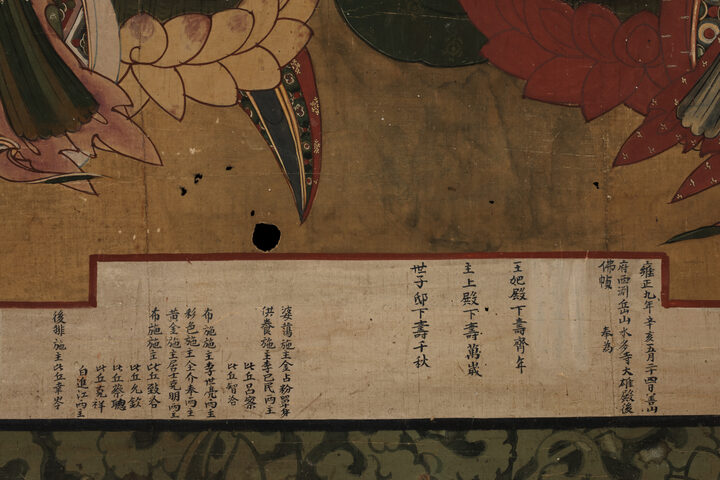 雍正九年辛亥五月二十四日善山
府西淵岳山水多寺大雄殿後
佛幀　奉為
王妃殿下壽齊年
主上殿下壽萬歲
世子邸下壽千秋
婆蕩施主金占粉單身
供養施主李已民両主
比丘呂宗
比丘智洽
布施施主李世亮両主
彩色施主金介奉両主
黃金施主居士克明両主
布施施主比丘致洽
比丘允欽
比丘察聰
比丘克祥
白進江両主
後排施主比丘幸岑